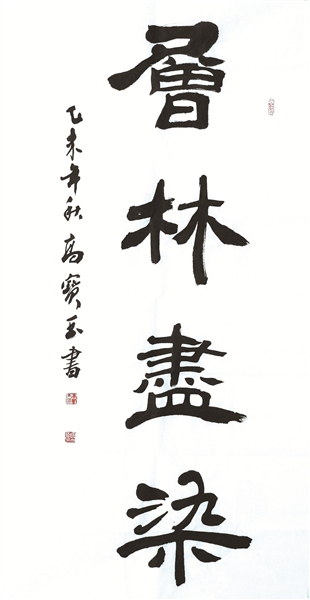 層林盡染
乙未年秋高寶玉書